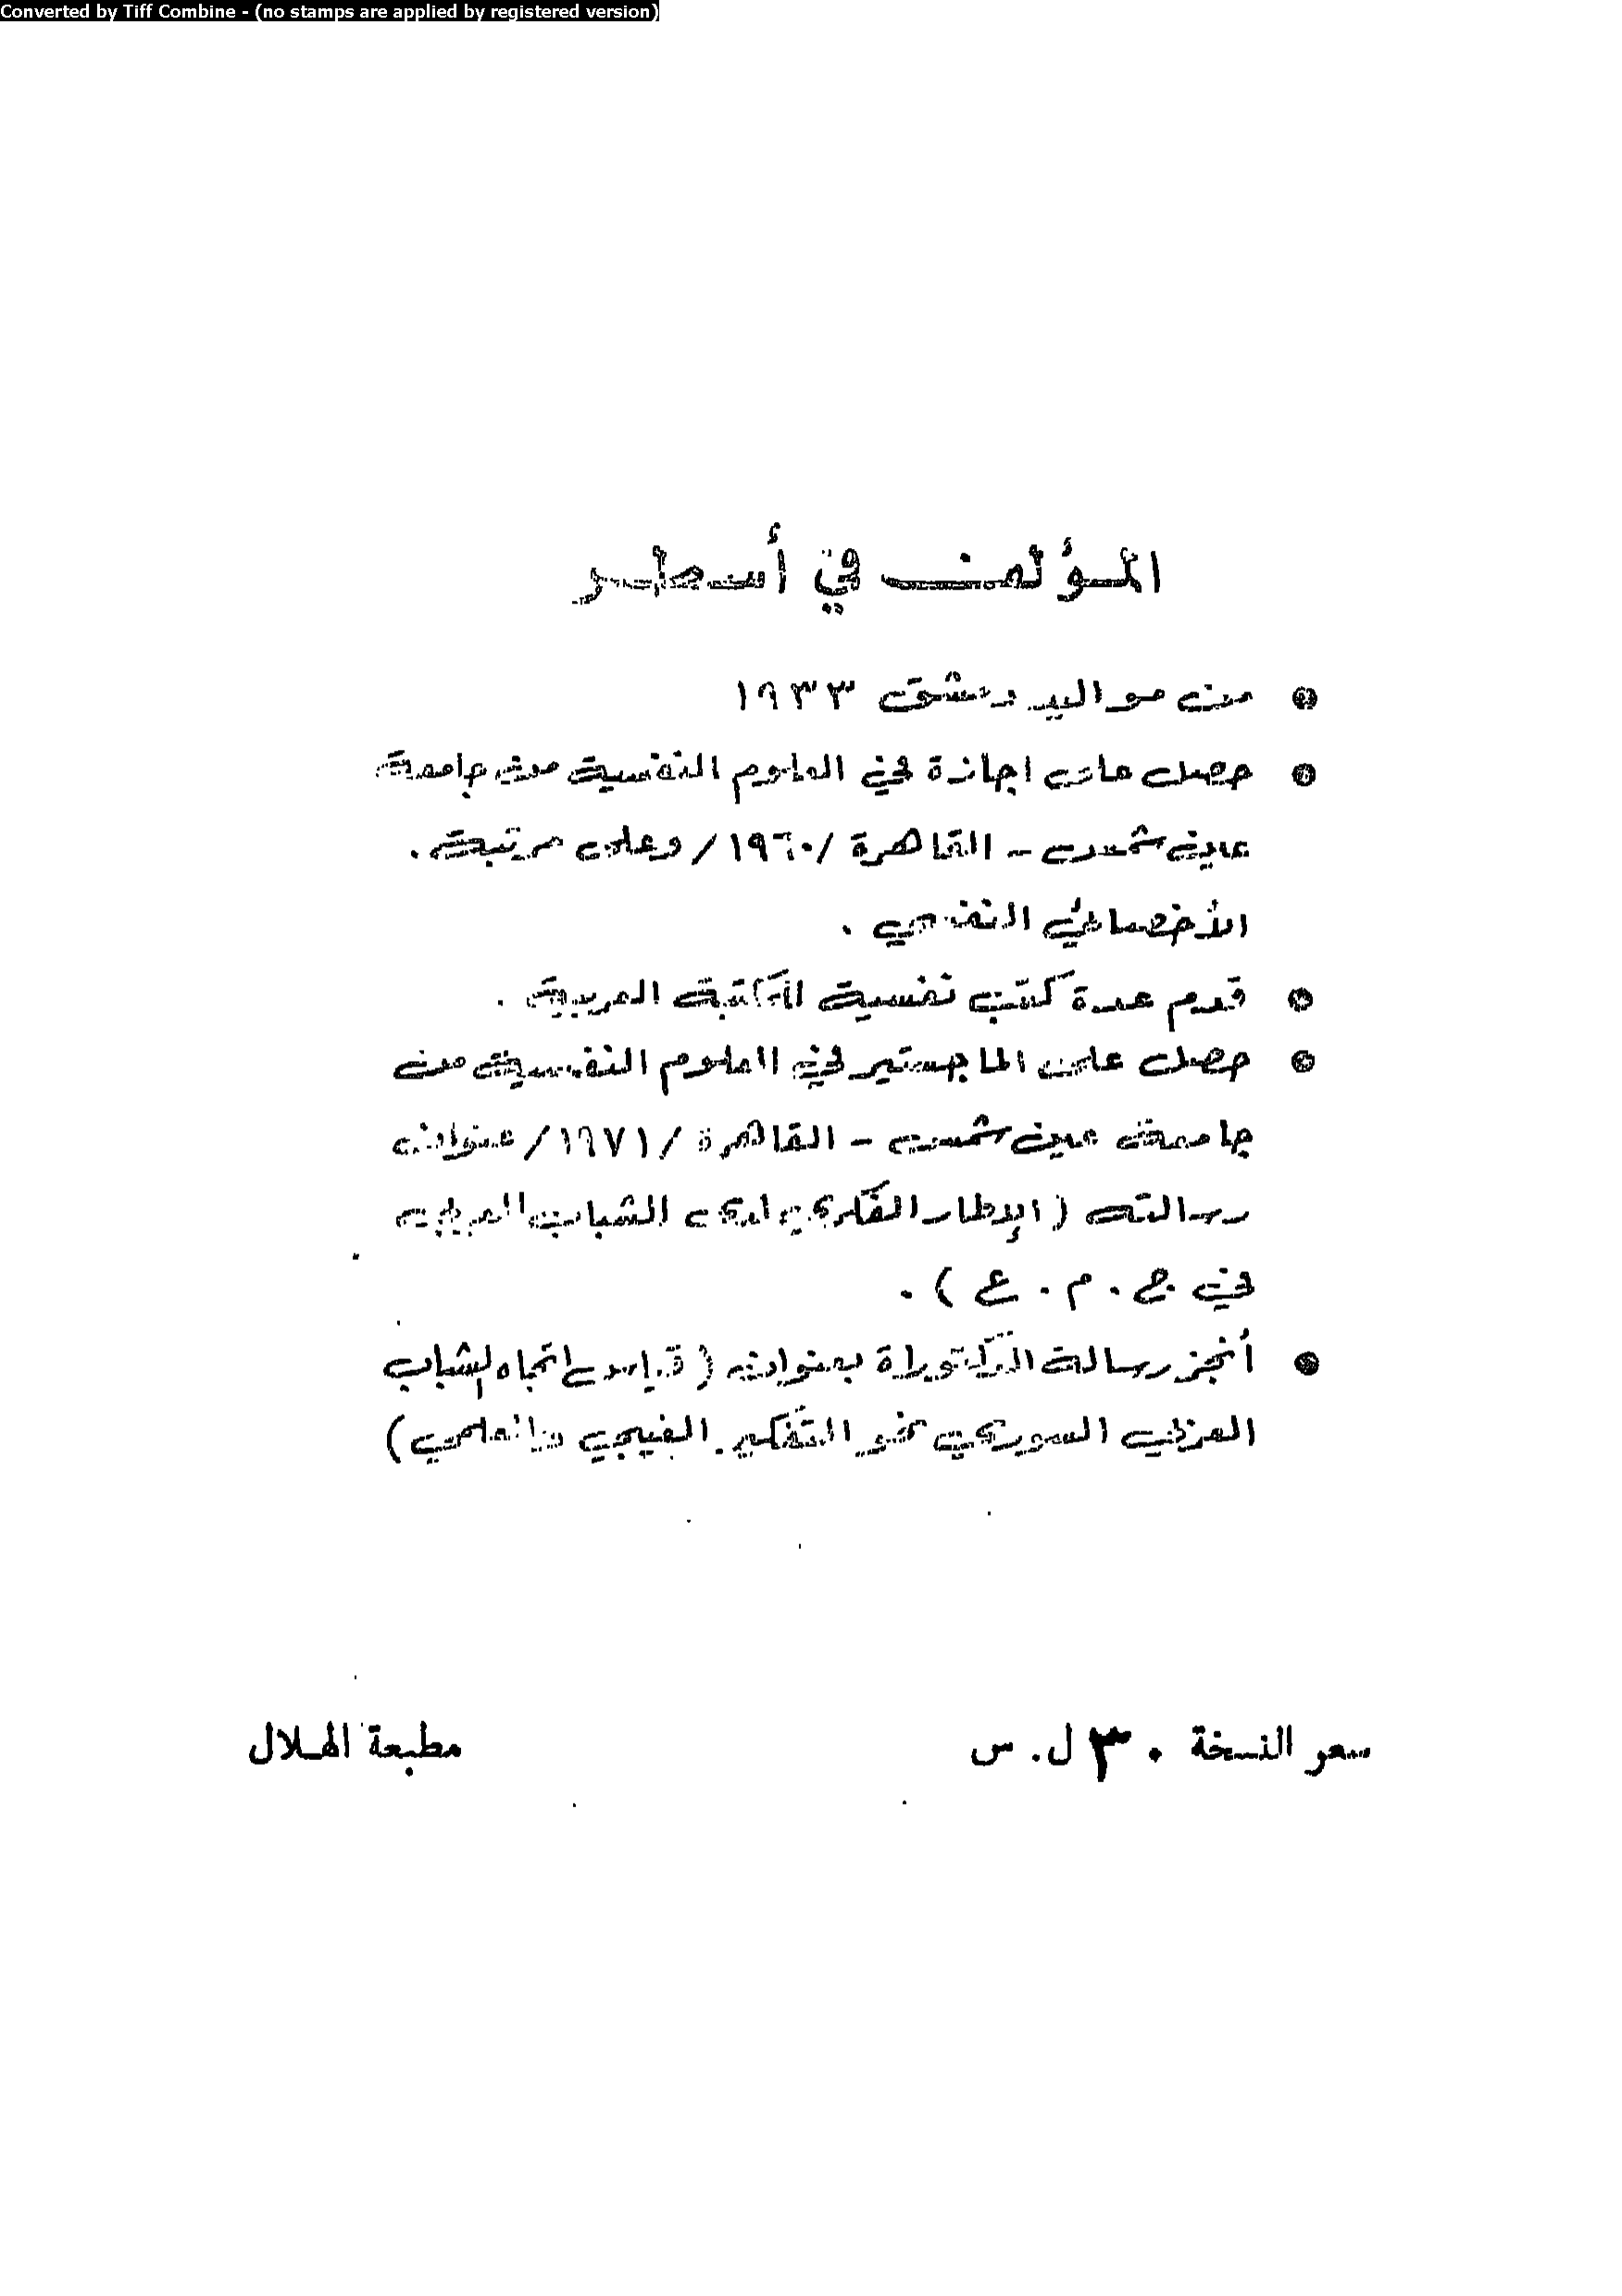 Converted by Tiff Combine - (no stamps are applied by registered version)
المؤلف في أسطر
● من مواليد دمشق ١٩٣٣
● حصل على اجازة في العلوم النفسية من جامعة
عين شمس – القاهرة /١٩٦٠/ وعلى مرتبة .
الأخصائي النفسي .
● قدم عدة كتب نفسية للمكتبة العربية .
● حصل على الماجستير في العلوم النفسية من
جامعة عين شمس – القاهرة /١٩٧١/ عنوان
رسالته ( الإطار الفكري لدى الشباب العربي
في ج . م . ع ) .
● أنجز رسالة الدكتوراة بعنوان ( قياس اتجاه الشباب
العربي السوري نحو التفكير الغيبي والعلمي )
سعر النسخة ٣٠ ل. س
مطبعة الهلال